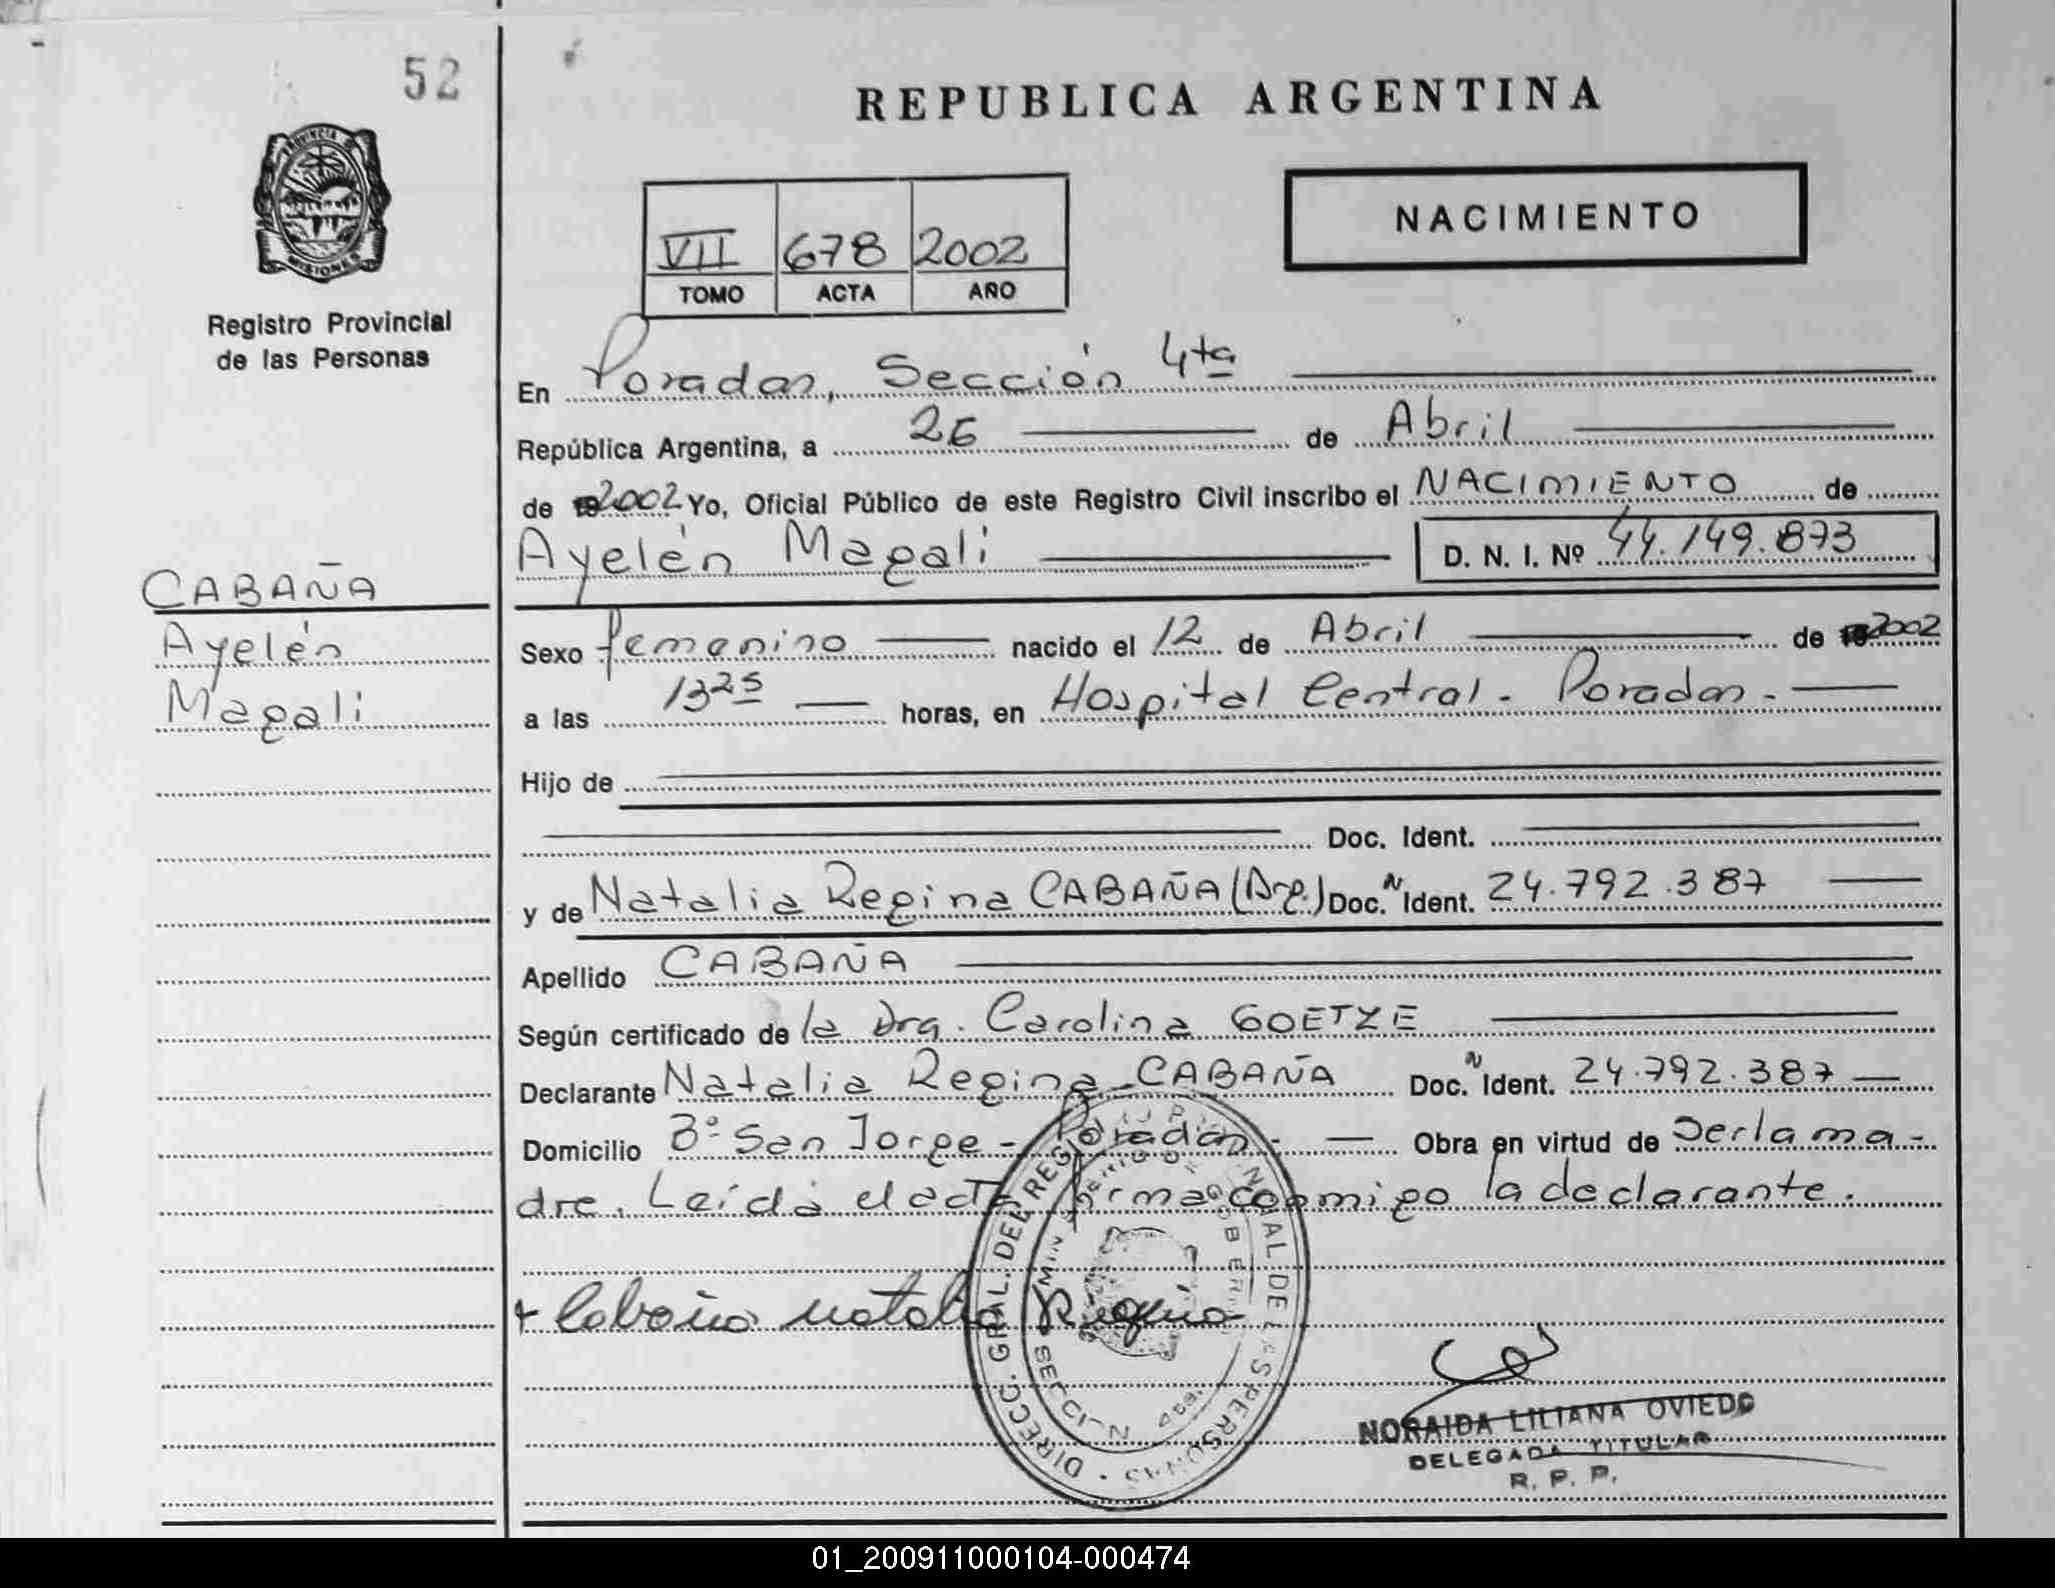 52
REPUBLICA ARGENTINA
PROVINCIA DE
MISIONES
Registro Provincial
de las Personas
NACIMIENTO
VII 678 2002
TOMO ACTA AÑO
En Posadas, Sección 4ta
República Argentina, a 26 de Abril
de 2002 Yo, Oficial Público de este Registro Civil inscribo el NACIMIENTO de
Ayelén Magali D. N. I. Nº 44.149.873
CABAÑA
Ayelén
Magali
Sexo femenino nacido el 12 de Abril de 2002
a las 13 25 horas, en Hospital Central - Posadas -
Hijo de
Doc. Ident.
y de Natalia Regina CABAÑA (Arg.) Doc. N Ident. 24.792.387
Apellido CABAÑA
Según certificado de la Dra. Carolina GOETZE
Declarante Natalia Regina CABAÑA Doc. N Ident. 24.792.387
Domicilio Bº San Jorge - Posadas - Obra en virtud de Ser la ma-
dre. Leída el acta firma conmigo la declarante.
+ Cabaña Natalia Regina
DIRECC. GRAL. DEL REGISTRO PROVINCIAL DE LAS PERSONAS
NORAIDA LILIANA OVIEDO
DELEGADA TITULAR
R. P. P.
01_200911000104-000474